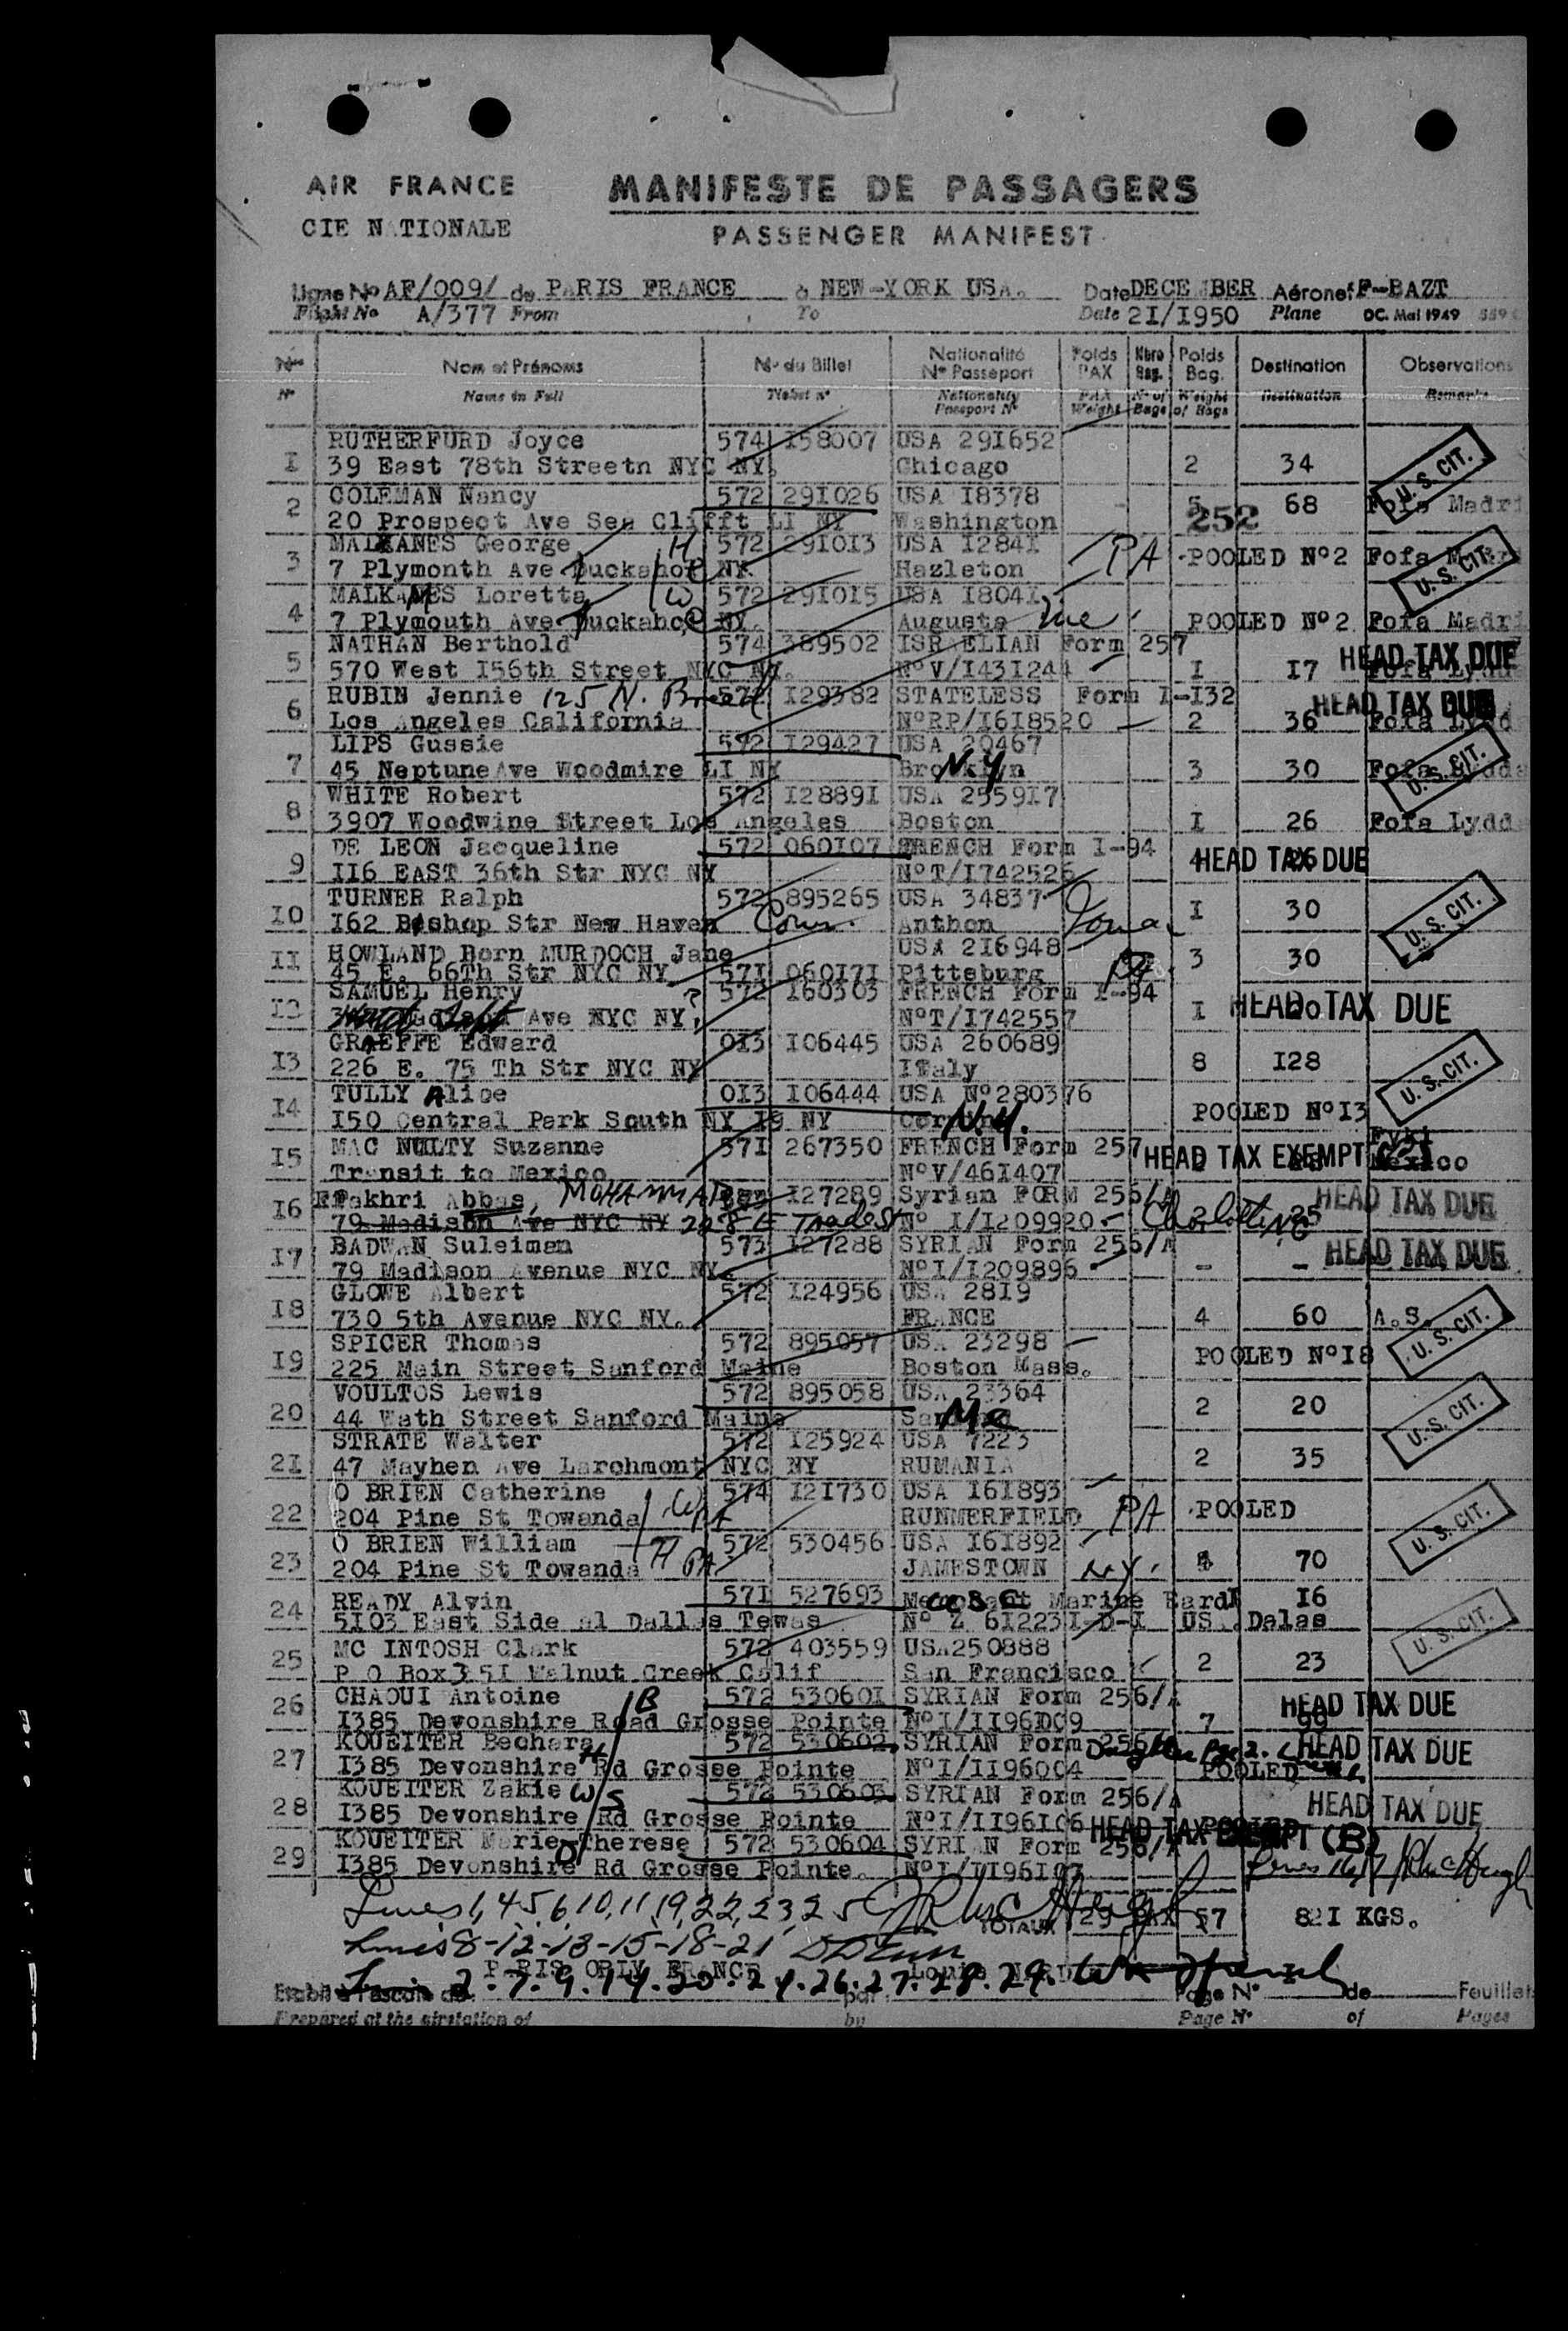 AIR FRANCE
CIE NATIONALE
MANIFESTE DE PASSAGERS
PASSENGER MANIFEST
Ligne No AF/009/ de PARIS FRANCE à NEW-YORK USA. Date DECEMBER Aéronef F-BAZT
Flight No A/377 From To Date 2I/I950 Plane OC. Mai 1949
Nos Nom et Prénoms No du Billet Nationalité No Passeport Poids PAX Nbre Bag. Poids Bag. Destination Observations
No Name in Full Ticket no Nationality Passport No PAX Weight No of Bags Weight of Bags Destination Remarks
RUTHERFURD Joyce 574 I58007 USA 29I652
I 39 East 78th Streetn NYC NY. Chicago 2 34 U.S. CIT.
COLEMAN Nancy 572 29I026 USA I8378
2 20 Prospect Ave Sea Clifft LI NY Washington 5 252 68 Fofa Madri
MALKANES George H 572 29I0I3 USA I284I
3 7 Plymonth Ave Tuckahoe NY Hazleton PA POOLED N°2 Fofa Madri U.S. CIT.
MALKAMES Loretta W 572 29I0I5 USA I804I
4 7 Plymouth Ave Tuckahoe NY. Augusta Me POOLED N°2 Fofa Madri
NATHAN Berthold 574 389502 ISRAELIAN Form 257
5 570 West I56th Street NYC NY. N°V/I43I244 I I7 HEAD TAX DUE Fofa Lydda
RUBIN Jennie 125 N. 572 I29382 STATELESS Form I-I32
6 Los Angeles California N°RP/I6I8520 2 36 HEAD TAX DUE Fofa Lydda
LIPS Gussie 572 I29427 USA 20467
7 45 NeptuneAve Woodmire LI NY Brooklyn N.Y 3 30 Fofa Lydda U.S. CIT.
WHITE Robert 572 I2889I USA 2559I7
8 3907 Woodwine Street Los Angeles Boston I 26 Fofa Lydd
DE LEON Jacqueline 572 060I07 FRENCH Form I-94
9 II6 EAST 36th Str NYC NY N°T/I742526 4 26 HEAD TAX DUE
TURNER Ralph 572 895265 USA 34837
I0 I62 Bishop Str New Haven Conn. Anthon Iowa I 30 U.S. CIT.
HOWLAND Born MURDOCH Jane USA 2I6948
II 45 E. 66Th Str NYC NY 57I 060I7I Pittsburg PA 3 30
SAMUEL Henry ? 572 I60303 FRENCH Form I-94
I2 Ave NYC NY. N°T/I742557 I HEAD TAX DUE
GRAEFFE Edward 0I3 I06445 USA 260689
I3 226 E. 75 Th Str NYC NY Italy 8 I28 U.S. CIT.
TULLY Alice 0I3 I06444 USA N°280376
I4 I50 Central Park South NY I9 NY N.Y. POOLED N°I3
MAC NULTY Suzanne 57I 267350 FRENCH Form 257
I5 Transit to Mexico N°V/46I407 HEAD TAX EXEMPT Mexico
Fakhri Abbas, MOHAMMAD I27289 Syrian FORM 256/A
I6 79 Madison Ave NYC NY 228 E Trade St N° I/I209920 Charlotte NC 2 25 HEAD TAX DUE
BADWAN Suleiman 573 I27288 SYRIAN Form 256/A
I7 79 Madison Avenue NYC NY. N°I/I209896 - - HEAD TAX DUE
GLOWE Albert 572 I24956 USA 28I9
I8 730 5th Avenue NYC NY. FRANCE 4 60 A.S. U.S. CIT.
SPICER Thomas 572 895057 USA 23298
I9 225 Main Street Sanford Maine Boston Mass. POOLED N°I8
VOULTOS Lewis 572 895058 USA 23364
20 44 Wath Street Sanford Maine Sanford Me 2 20 U.S. CIT.
STRATE Walter 572 I25924 USA 7223
2I 47 Mayhen Ave Larchmont NYC NY RUMANIA 2 35
O BRIEN Catherine 574 I2I730 USA I6I893
22 204 Pine St Towanda W PA RUNMERFIELD PA POOLED U.S. CIT.
O BRIEN William H 572 530456 USA I6I892
23 204 Pine St Towanda PA. JAMESTOWN N.Y. 8 70
READY Alvin 57I 527693 Merchant Marine Card I I6
24 5I03 East Side al Dallas Tewas N° Z 6I223I-D-I US. Dalas
MC INTOSH Clark 572 403559 USA250888 U.S. CIT.
25 P O Box 35I Walnut Creek Calif San Francisco 2 23
CHAOUI Antoine B 572 53060I SYRIAN Form 256/A
26 I385 Devonshire Road Grosse Pointe N°I/II96D09 7 99 HEAD TAX DUE
KOUEITER Bechara H 572 530602 SYRIAN Form 256/A
27 I385 Devonshire Rd Grosse Pointe N°I/II96004 POOLED HEAD TAX DUE
KOUEITER Zakie W/S 572 530603 SYRIAN Form 256/A
28 I385 Devonshire Rd Grosse Pointe N°I/II96I06 POOLED HEAD TAX DUE
KOUEITER Marie Therese D 572 530604 SYRIAN Form 256/A HEAD TAX EXEMPT (B)
29 I385 Devonshire Rd Grosse Pointe. N°I/II96I07 Lines 16, 17
Lines 1, 4, 5, 6, 10, 11, 19, 22, 23, 25
TOTAUX 29 PAX 57 82I KGS.
Lines 8-12-13-15-18-21
PARIS ORLY FRANCE
2. 7. 9. 14. 20. 24. 26. 27. 28. 29.
Etabli à l'escale de par Page No I de Feuillets
Prepared at the airstation of by Page No of Pages